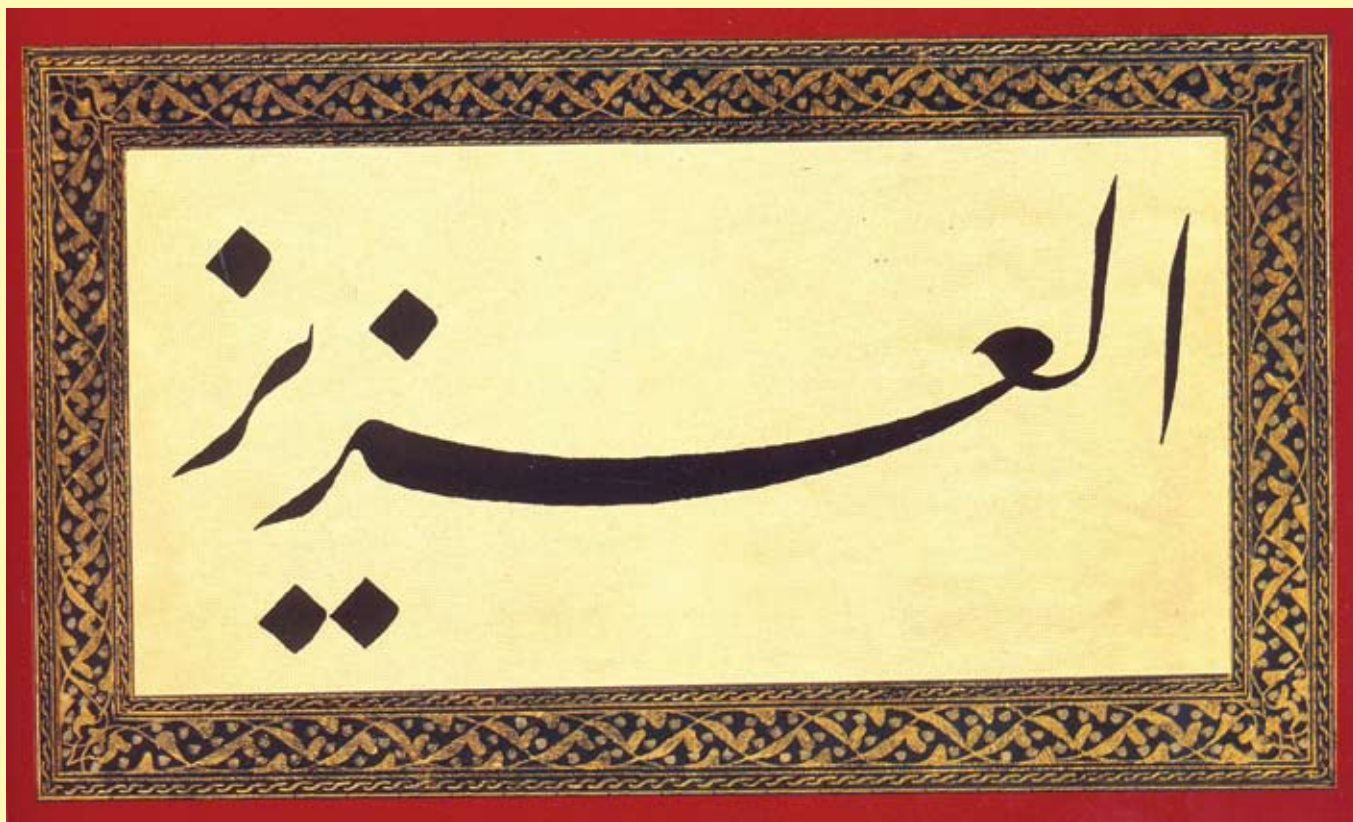 العزيز